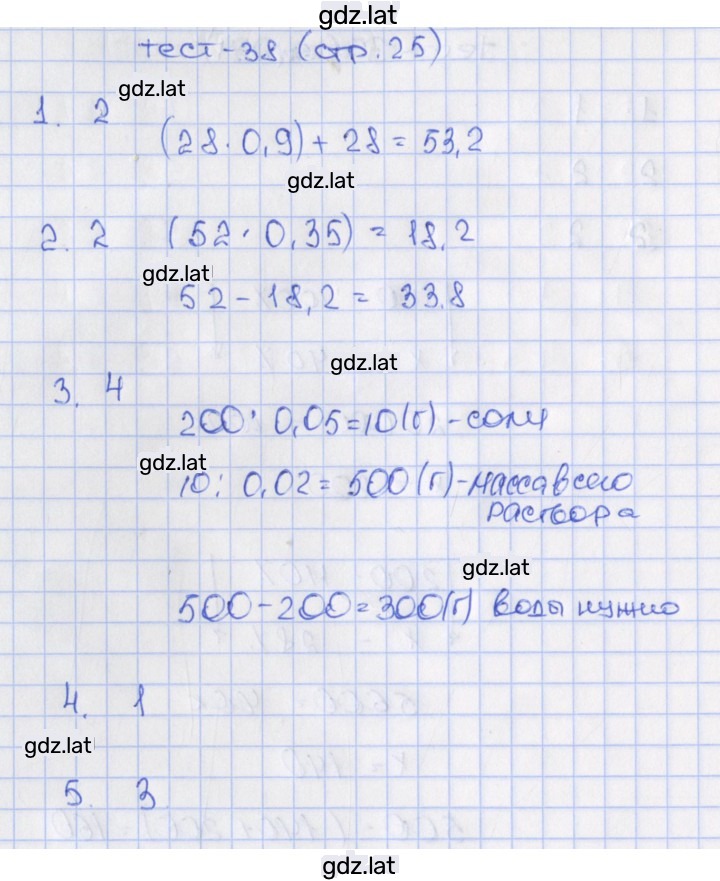 gdz.lat
тест-38 (стр. 25)
gdz.lat
1. 2
(28 · 0,9) + 28 = 53,2
gdz.lat
2. 2 (52 · 0,35) = 18,2
gdz.lat
52 - 18,2 = 33.8
gdz.lat
3. 4
200 · 0,05 = 10(г) - соли
gdz.lat
10 : 0,02 = 500 (г) - масса всего
раствора
gdz.lat
500 - 200 = 300(г) воды нужно
4. 1
gdz.lat
5. 3
gdz.lat